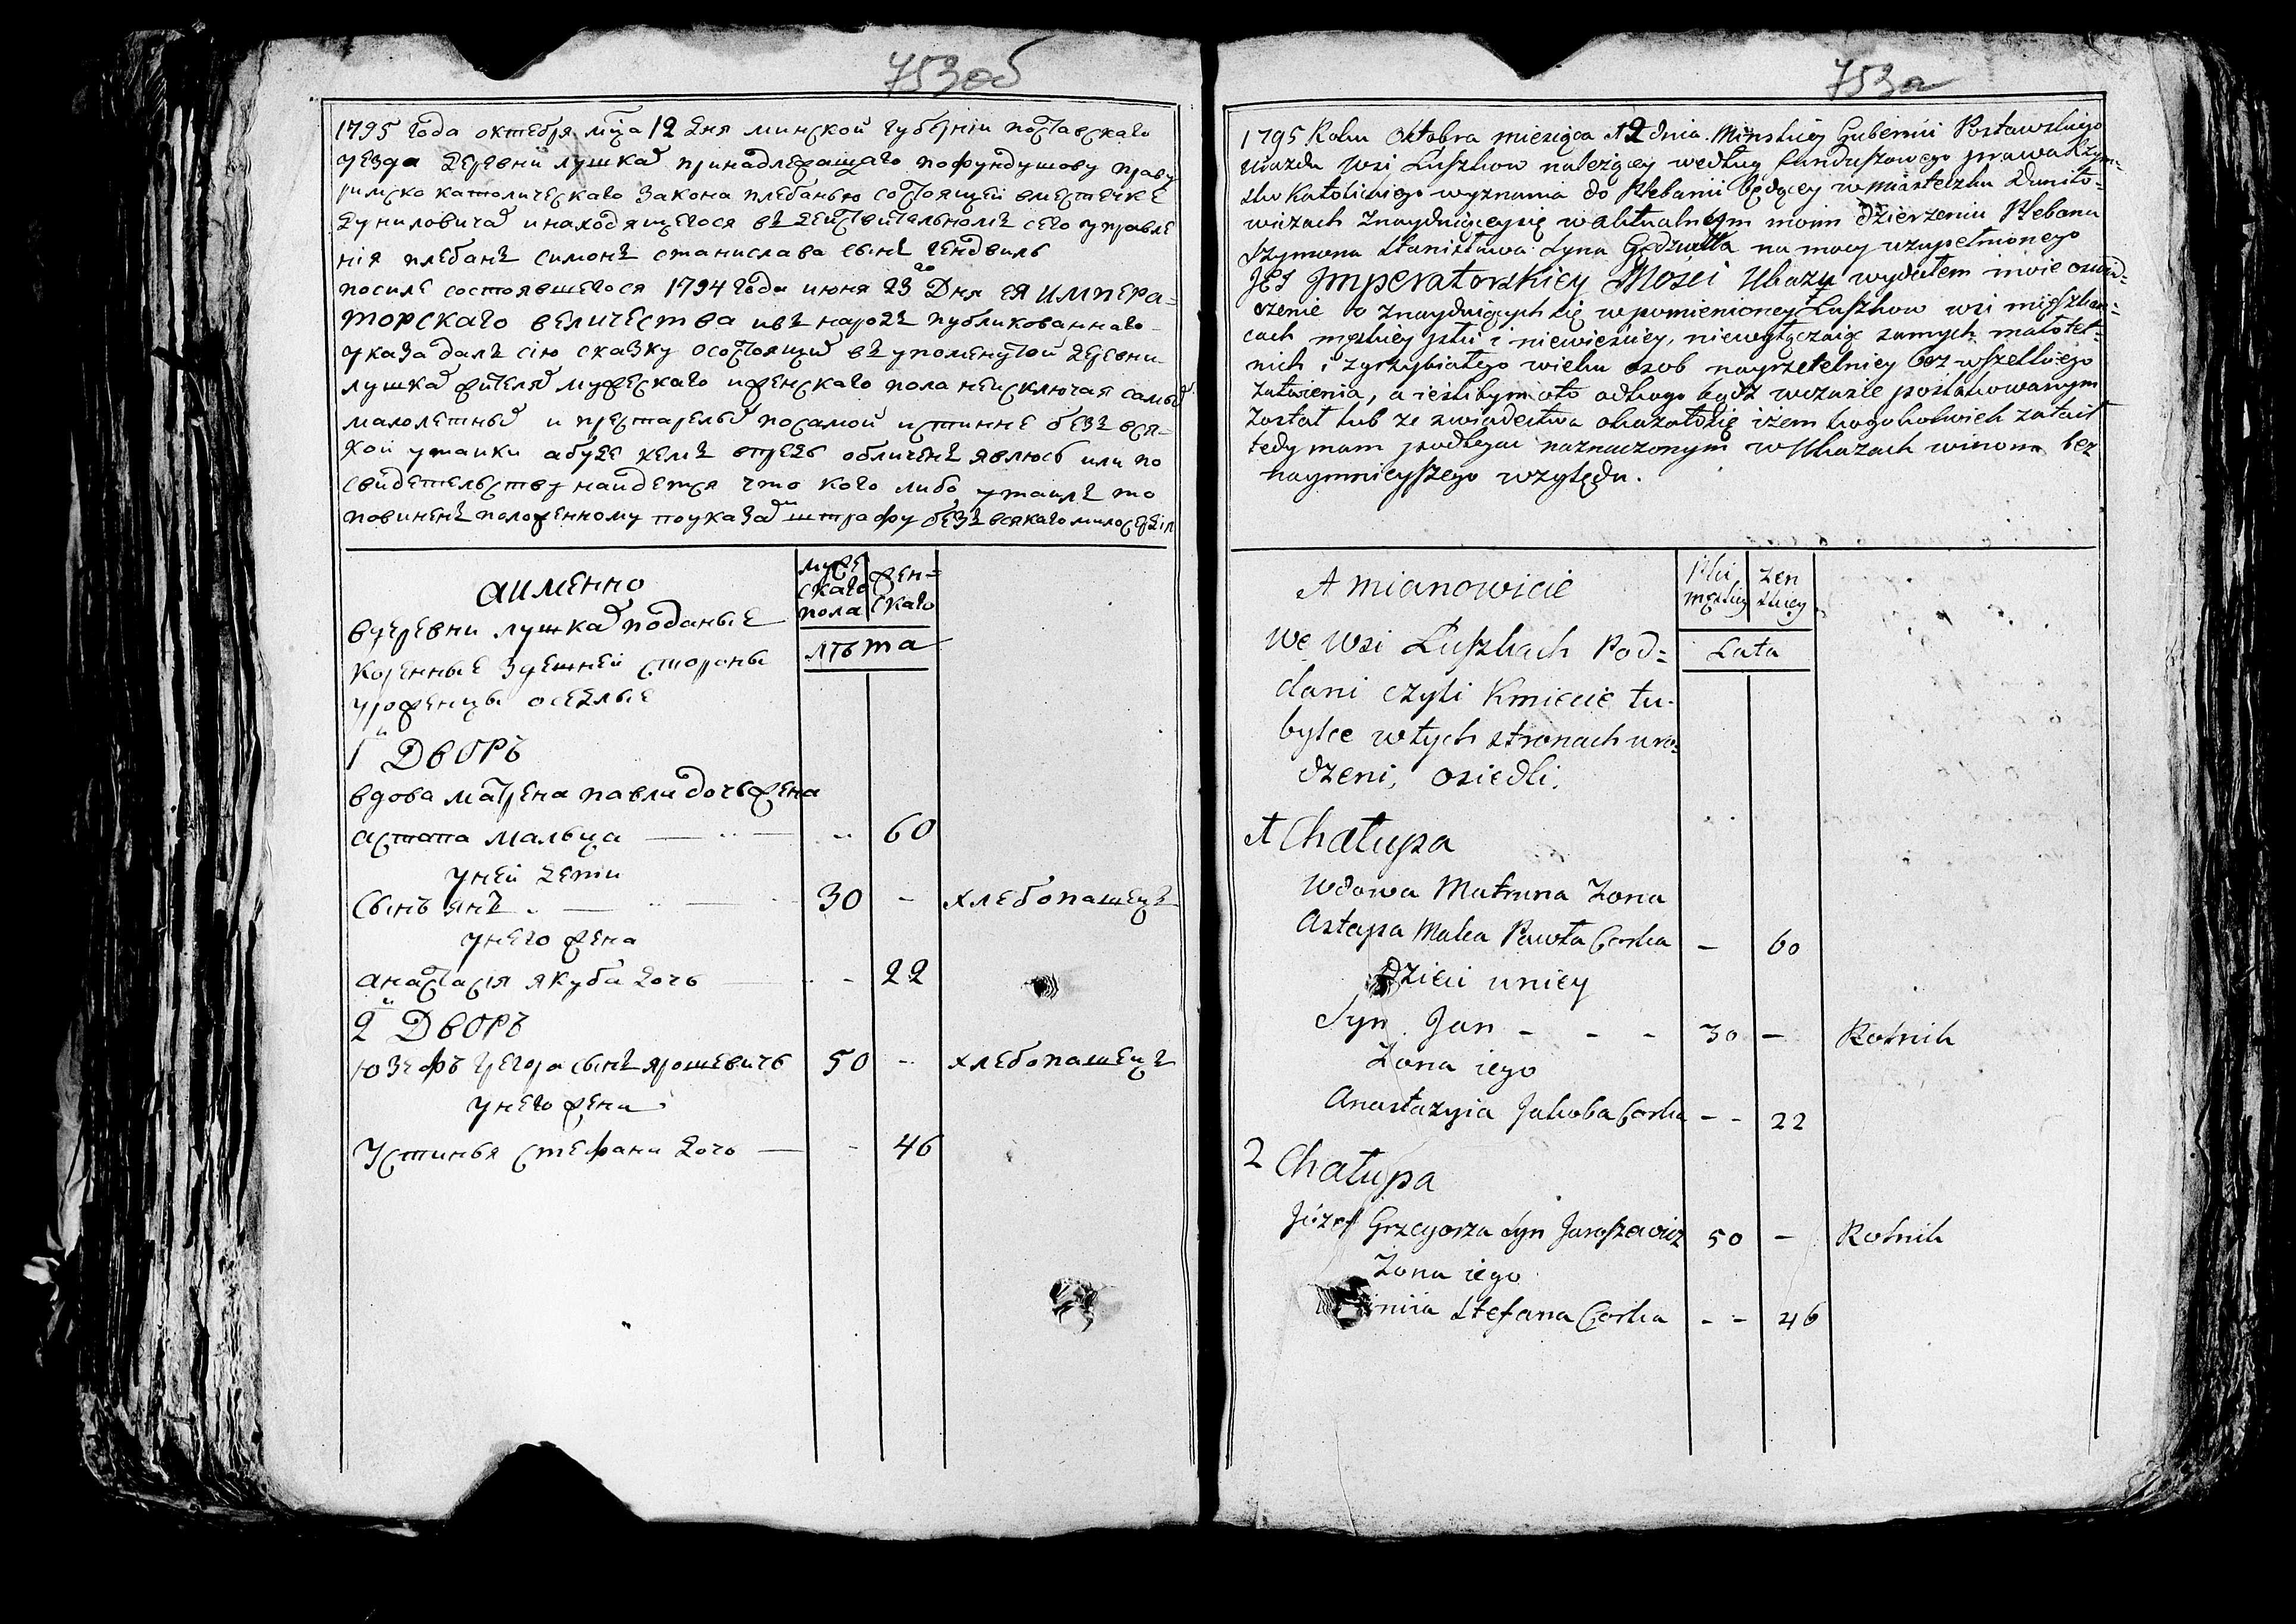 753об
1795 года октебря мца 12 дня минской губерніи поставскаго
уезда деревни лушках принадлежащаго пофундушову праву
римско католическаго закона плебанью состоящей вместечке
дуниловичах инаходящегося въ действительномъ сего управле
нія плебанъ симонъ станислава сынъ гендвиль
посиле состоявшегося 1794 года июня 23го дня ЕЯ ИМПЕРА-
ТОРСКАГО ВЕЛИЧЕСТВА ивъ народъ публикованнаго
указа далъ сію сказку осостоящих въ упоменутой деревни
лушках жителях мужескаго иженскаго пола неисключая самых
малолетных и престарелых посамой истинне безъ вся-
кой утайки абуде кемъ впредь обличенъ явлюсь или по
свидетельству найдется что кого либо утаилъ то
повиненъ положенному поуказам штрафу безъ всякаго милосердія
аименно
муже
скаго
пола
жен-
скаго
вдеревни лушках поданые
коренные здешней стороны
уроженцы оседлые
лѣта
1й ДВОРЪ
вдова матрена павла дочь жена
астапа мальца — 60
уней дети
сынъ янъ — 30 - хлебопашецъ
унего жена
анастасія якуба дочь — - 22
2й ДВОРЪ
юзефъ грегора сынъ ярошевичь 50 - хлебопашецъ
унего жена
устинья стефана дочь — - 46
753а
1795 Roku Oktobra miesiąca 12 dnia Minskiey Gubernii Postawskiego
Uiazdu Wsi Łuszkow należącey według funduszowego prawa Rzym-
sko Katolickiego wyznania do Plebanii będącey w miasteczku Duniło-
wiczach znayduiąceysię w aktualnym moim dzierzeniu Plebana
Szymona Stanisława Syna Giedziwiłła na mocy wzupełnionego
JEJ Imperatorskiey Mosci Ukazu wydałem moie oswiad-
czenie o znayduiących się w pomienioney Łuszkow wsi mieszkań-
cach męskiey płci i niewieściey, niewyłączaiąc samych małolet-
nich i zgrzybiałego wieku osob nayrzetelniey bez wszelkiego
zataienia, a ieslibym oto odkogo bądz wczasie poszlakowanym
został lub ze swiadectwa okazałosię iżem kogokolwiek zataił
tedy mam podlegac naznaczonym w Ukazach winom bez
naymnieyszego względu.
A mianowicie
Płci
męskiey
żen
skiey
We Wsi Łuszkach Pod-
dani czyli Kmiecie tu-
bylce w tych stronach uro-
dzeni, osiedli.
Lata
1 Chałupa
Wdowa Matruna Zona
Astapa Malca Pawła Corka - 60
Dzieci uniey
Syn Jan - - - 30 - Rolnik
Zona iego
Anastazyia Jakoba Corka - - 22
2 Chałupa
Józef Grzegorza Syn Jaroszewicz 50 - Rolnik
Zona iego
Stefana Corka - - 46